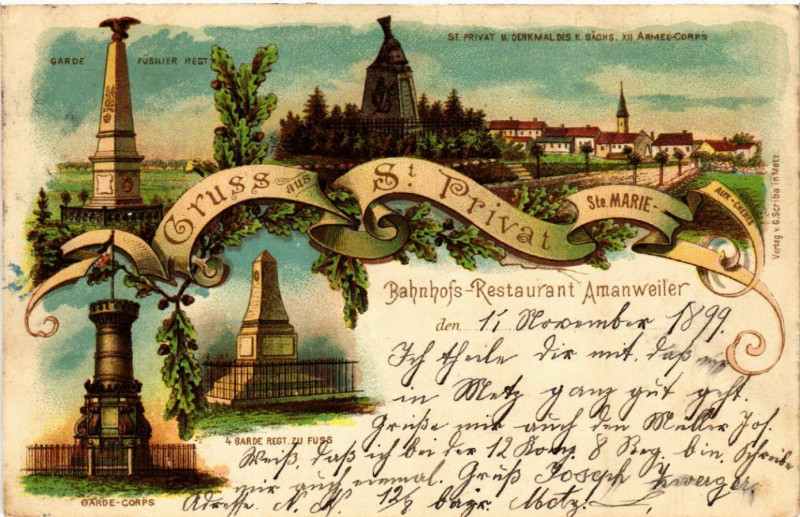 GARDE FÜSILIER REGT
ST. PRIVAT U. DENKMAL DES K. SÄCHS. XII ARMEE-CORPS
Gruss aus St. Privat
Ste. MARIE-
AUX-CHÊNES
Verlag v. G. Scriba in Metz
Bahnhofs-Restaurant Amanweiler
den 11 November 1899.
Ich theile Dir mit, daß
in Metz ganz gut geht.
Grüße mir auch den Müller Jos.
4 GARDE REGT. ZU FUSS
Weiß, daß ich bei der 12 Komp. 8 Reg. bin. Schreibe
mir auch einmal. Gruß Joseph Zwerger,
GARDE-CORPS
Adresse. N. N. 12/8 bayr. Metz.